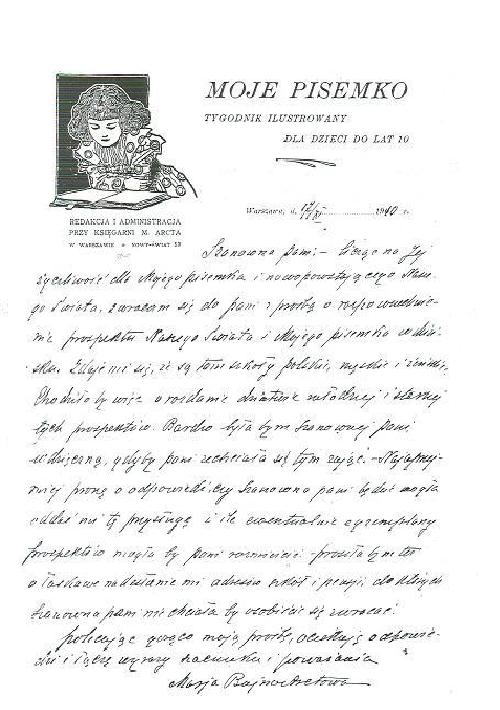 MOJE PISEMKO
TYGODNIK ILUSTROWANY
DLA DZIECI DO LAT 10
REDAKCJA I ADMINISTRACJA
PRZY KSIĘGARNI M. ARCTA
W WARSZAWIE • NOWY-ŚWIAT 53
Warszawa, d. 19 r.
Szanowna Pani. – Licząc na Jej
życzliwość dla Mojego pisemka i nowopowstającego Nasze-
go Świata, zwracam się do pani z prośbą o rozpowszechnie-
nie prospektu Naszego Świata i Mojego pisemka w
Zdaje mi się, że są tam szkoły polskie, męskie i żeńskie.
Chodziłoby więc o rozdanie dziatwie młodszej i starszej
tych prospektów. Bardzo byłabym szanownej pani
wdzięczną, gdyby pani zechciała się tym zająć. – Najuprzej-
miej proszę o odpowiedź, czy szanowna pani będzie mogła
oddać mi tę przysługę i ile ewentualnie egzemplarzy
prospektów mogła by pani rozmieścić prosiłabym też
o łaskawe nadesłanie mi adresów szkół i pensji, do których
szanowna pani nie chciała by osobiście się zwracać.
Polecając gorąco moją prośbę, oczekuję odpowie-
dzi i łączę wyrazy szacunku i poważania
Marja Buyno-Arctowa